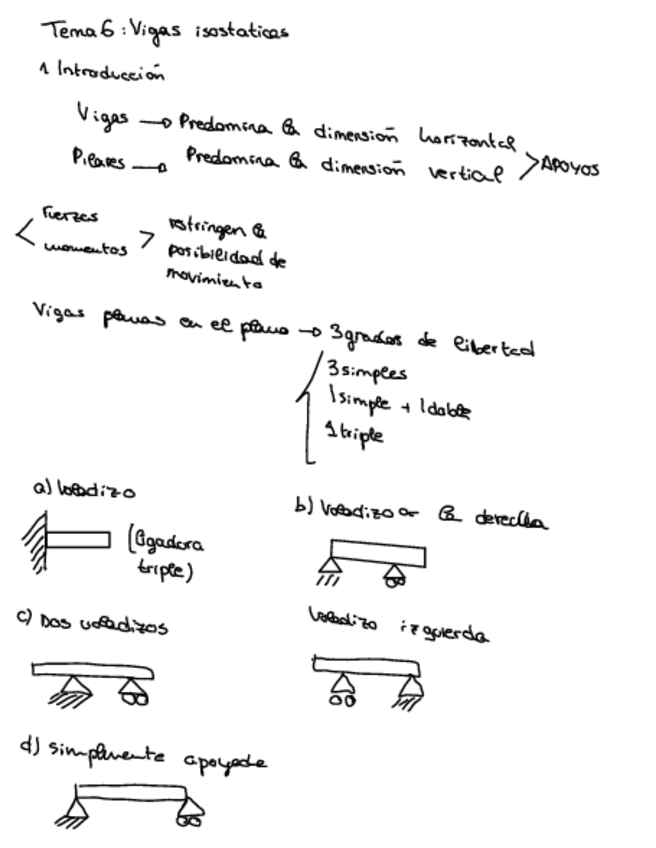 Tema 6: Vigas isostaticas
1 Introducción
Vigas → Predomina la dimensión horizontal
Pilares → Predomina la dimensión vertical > APOYOS
< fuerzas
momentos > restringen la
posibilidad de
movimiento
Vigas planas en el plano → 3 grados de libertad
3 simples
1 simple + 1 doble
1 triple
a) Voladizo
(ligadora
triple)
b) Voladizo a la derecha
c) Dos voladizos
Voladizo izquierda
d) Simplmente apoyada